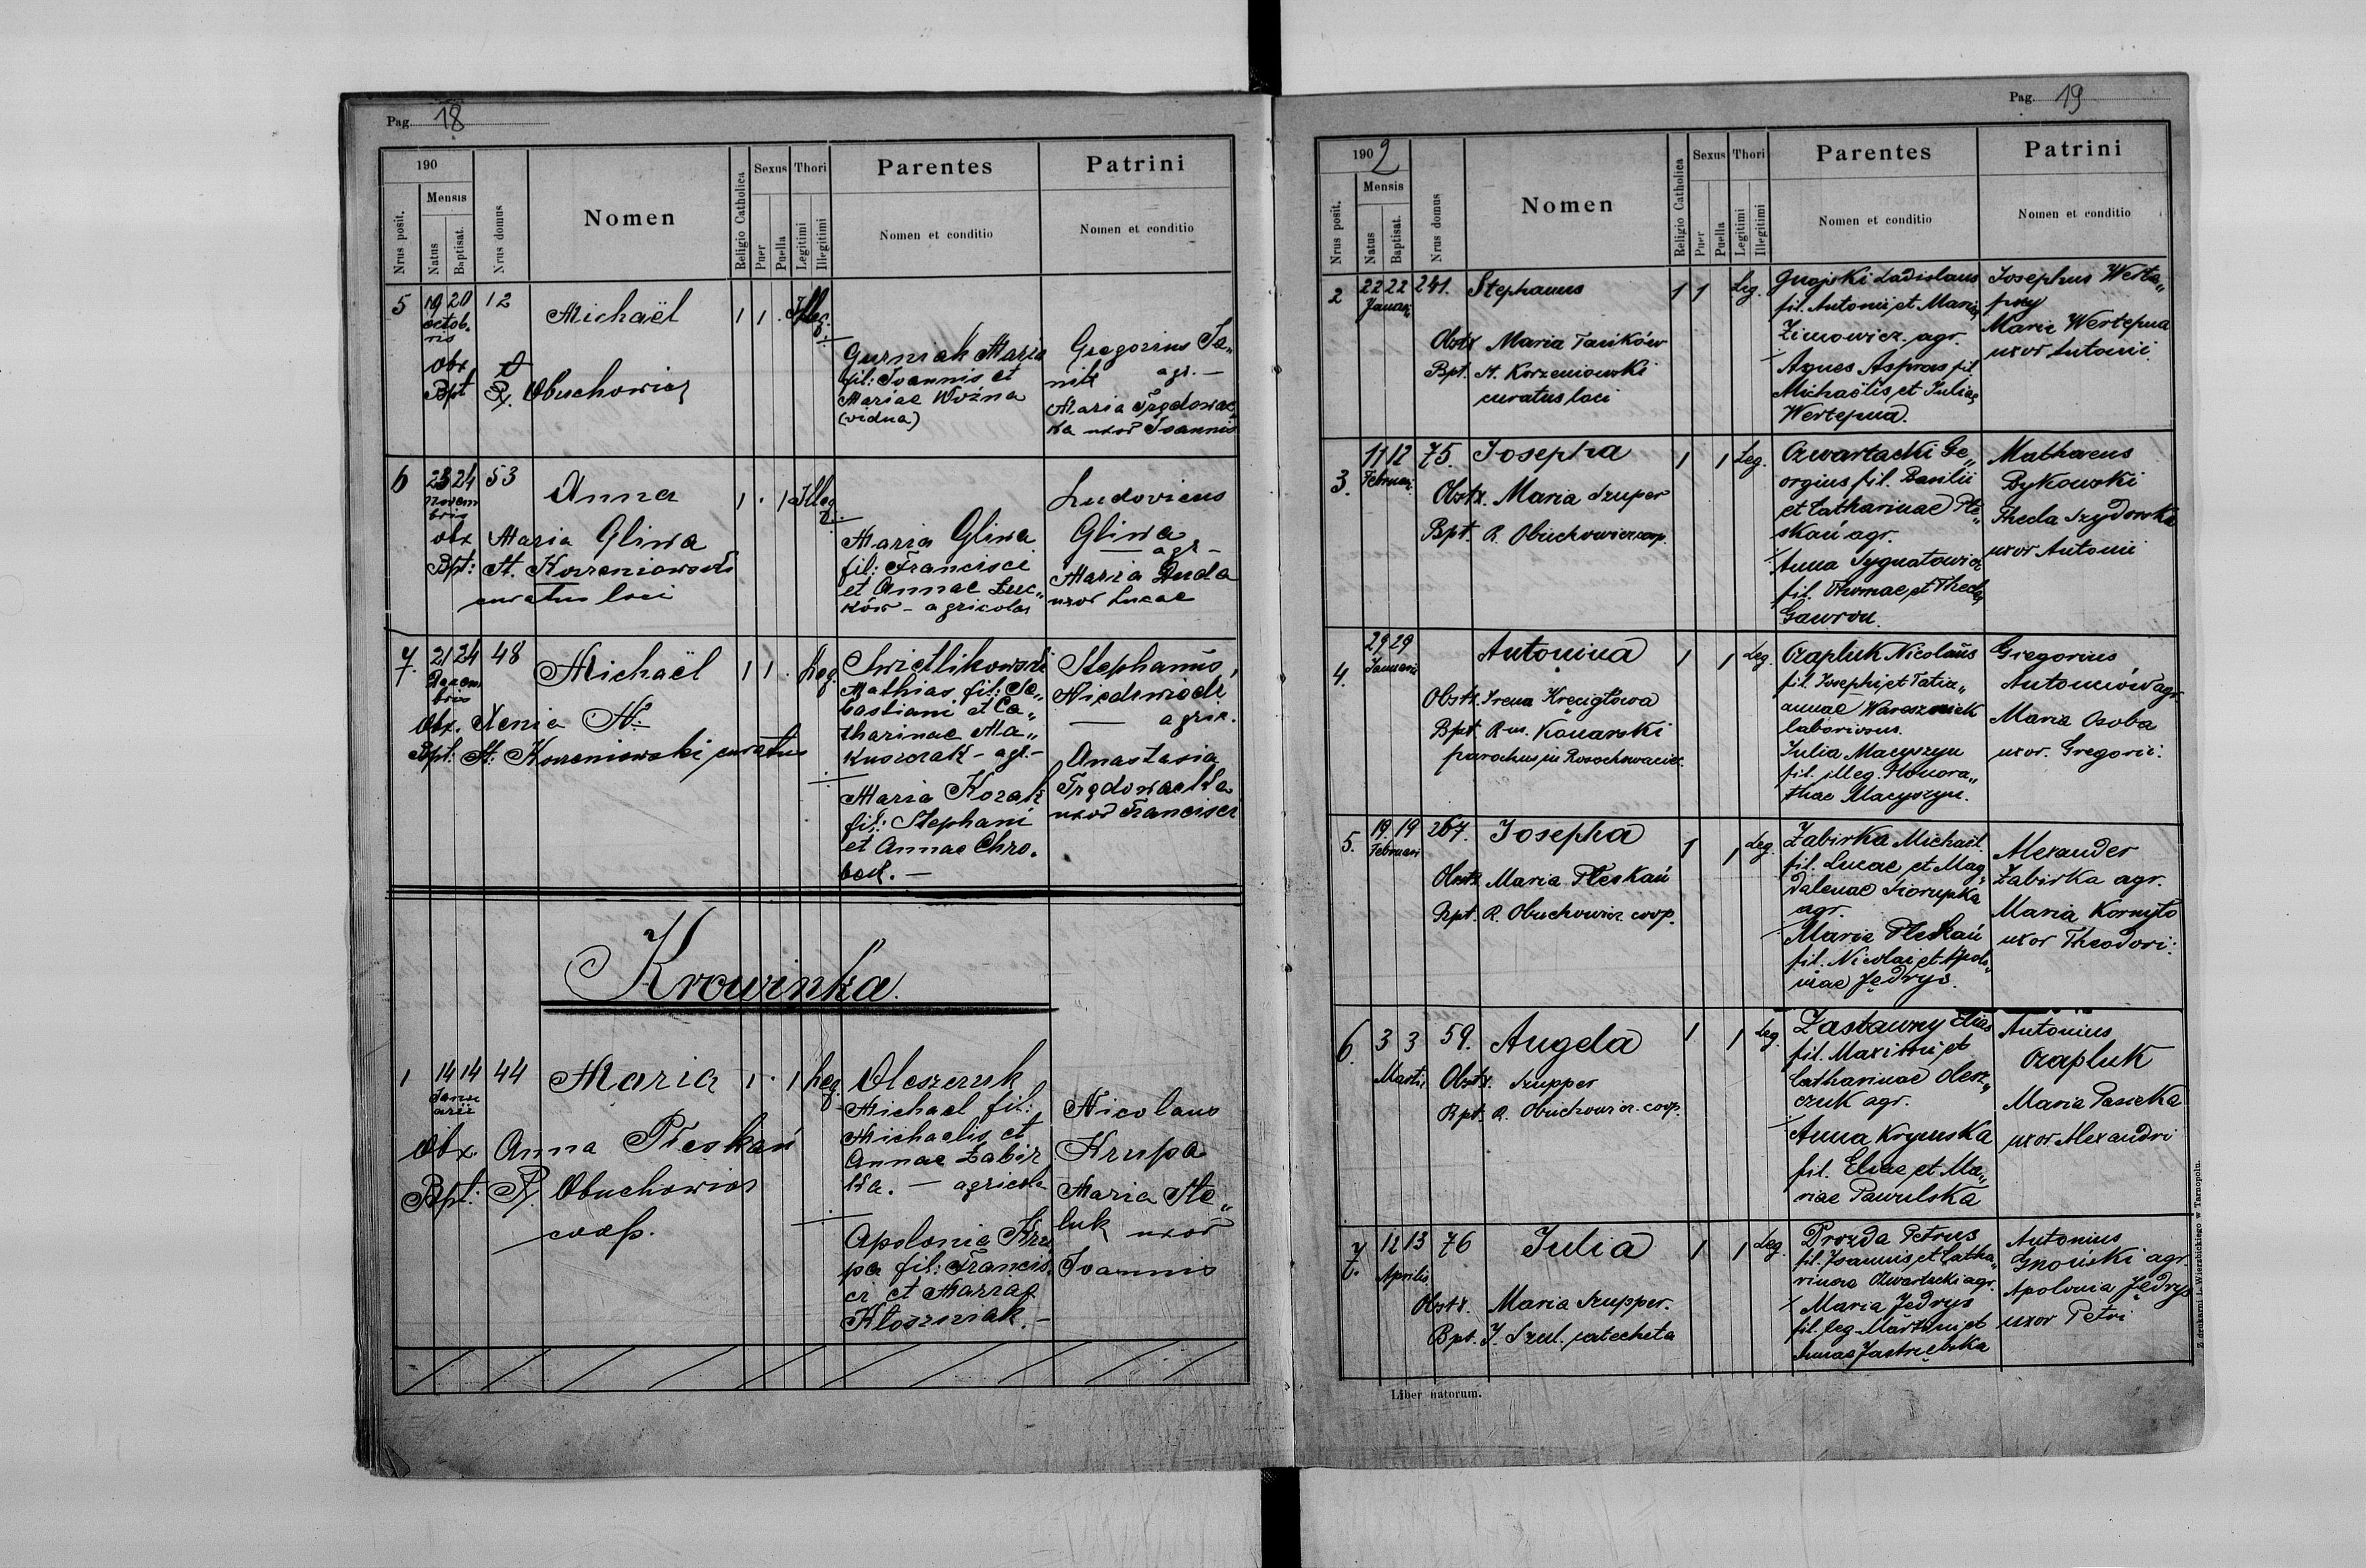 Pag. 18
190
Nrus posit.
Mensis
Natus
Baptisat.
Nrus domus
Nomen
Religio Catholica
Sexus
Puer
Puella
Thori
Legitimi
Illegitimi
Parentes
Nomen et conditio
Patrini
Nomen et conditio
5 19 20 12 Michaël 1 1 . Illeg.
octob.
ris
obx
Bpt R. Obuchowicz
Gurniak Maria
fil: Joannis et
Mariae Woźna
(vidua)
Gregorius Ja„
nik agr. —
Maria Trędowac„
ka uxor Joannis
6 23 24 53 Anna 1 . 1 Illeg.
Novem
bris
obx Maria Gliwa
Bpt: St. Korzeniowski
curatus loci
Maria Gliwa
fil: Francisci
et Annae Luc„
ków - agricolae
Ludovicus
Gliwa
— agr -
Maria Duda
uxor Lucae
7. 21 24 48 Michaël 1 1 . Leg.
Decem
bris
Obx. Xenia N:
Bpt: St. Korzeniowski curatus
Swietlikowski
Mathias fil: Se„
bastiani et Ca„
tharinae Ma„
kuszczak - agr. -
Maria Kozak
fil: Stephani
et Annae Chro.
bak. —
Stephanus
Niedzwiedz
— agric.
Anastasia
Trędowacka
uxor Francisci
Krowinka.
1 14 14 44 Maria 1 . 1 Leg.
Janu
arii
Obx. Anna Pleskań
Bpt: R. Obuchowicz
coop.
Oleszczuk
Michael fil:
Michaelis et
Annae Żabir
ka. — agricola
Apolonia Kru
pa fil: Francis.
ci et Mariae
Kłoszniak. —
Nicolaus
Krupa
Maria Ste„
luk uxor
Joannis
Pag. 19
1902
Nrus posit.
Mensis
Natus
Baptisat.
Nrus domus
Nomen
Religio Catholica
Sexus
Puer
Puella
Thori
Legitimi
Illegitimi
Parentes
Nomen et conditio
Patrini
Nomen et conditio
2 22 22 241. Stephanus 1 1 Leg.
Januar„
Obstx Maria Taraków
Bpt. St. Korzeniowski
curatus loci
Gnojski Ladislaus
fil. Antonii et Mariae
Zimowicz agr.
Agnes Aspras fil
Michaëlis et Juliae
Wertepna.
Josephus Werte„
pny
Maria Wertepna
uxor Antonii
3. 11 12 75. Josepha 1 1 Leg.
Februar.
Obstx. Maria Szuper
Bpt. R. Obuchowicz coop.
Czwartacki Ge„
orgius fil. Basilii
et Catharinae Ple„
skań agr.
Anna Sygnatowicz
fil. Thomae et Theclae
Gawron.
Mathaeus
Bykowski
Thecla Szydowska
uxor Antonii
4. 29 29 Antonina 1 1 Leg.
Januarii
Obstx. Irena Kręcigłowa
Bpt. R-us. Konarski
parochus in Rosochowaciec
Czapluk Nicolaus
fil. Josephi et Tatia„
annae Waraszniek
laboriosus.
Julia Macyszyn
fil. illeg. Honora„
thae Macyszyn.
Gregorius
Antonców agr
Maria Osoba
uxor. Gregorii.
5. 19. 19 267. Josepha 1 1 Leg.
Februari
Obstx Maria Pleskań
Bpt. R. Obuchowicz coop.
Żabirka Michaël.
fil. Lucae et Mag„
dalenae Skorupka
agr.
Maria Pleskań
fil. Nicolai et Apolo„
niae Jędrys.
Alexander
Żabirka agr.
Maria Kornyło
uxor Theodori:
6. 3 3 59. Angela 1. 1 Leg.
Martii
Obstx. Szupper
Bpt. R. Obuchowicz. coop.
Zastawny Elias
fil. Maximi et
Catharinae Olesz„
czuk agr.
Anna Krymska
fil. Eliae et Ma„
riae Pawulska
Antonius
Czapluk
Maria Pasieka
uxor Alexandri
7. 12 13 76 Julia 1 1 Leg.
Aprilis
Obstx. Maria Szupper.
Bpt. J. Szul. catecheta
Drozda Petrus
fil. Joannis et Catha„
rinae Czwartacki agr.
Maria Jędrys
fil. leg. Martini et
Annae Jastrzębska
Antonius
Gnoiński agr.
Apolonia Jędrys
uxor Petri
Liber natorum.
Z drukarni L. Wierzbickiego w Tarnopolu.